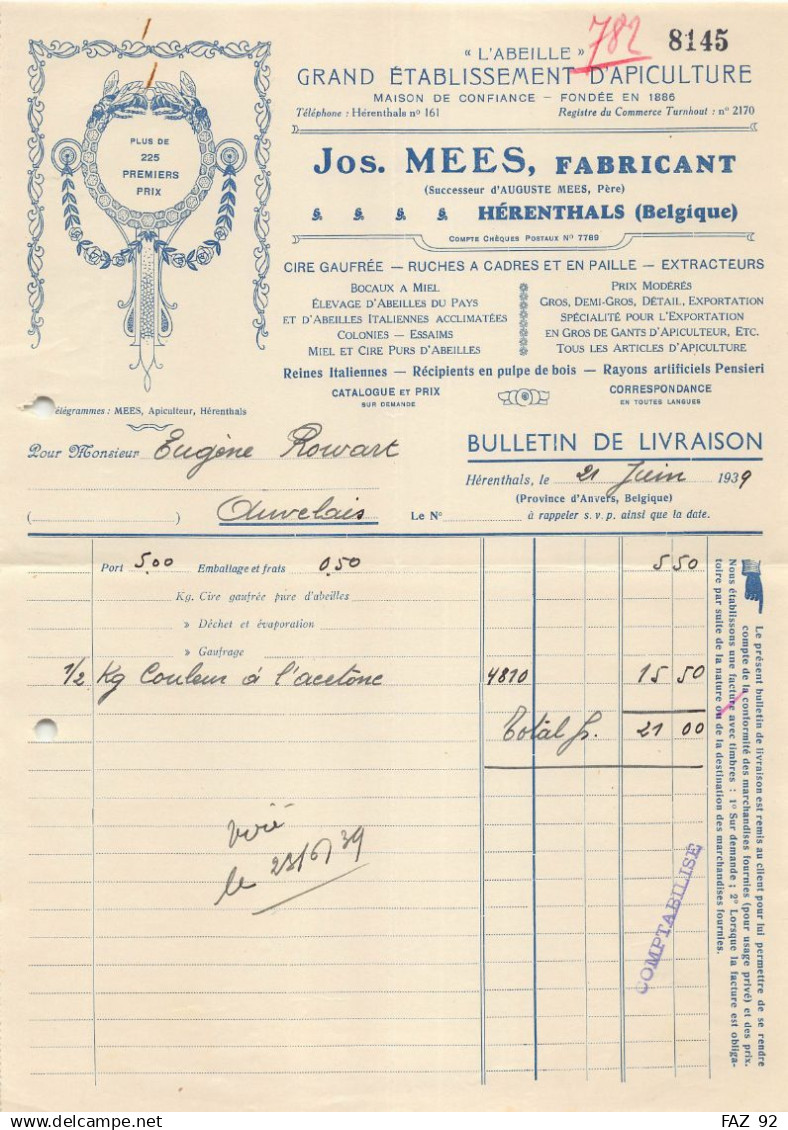 782
8145
« L'ABEILLE »
GRAND ÉTABLISSEMENT D'APICULTURE
MAISON DE CONFIANCE – FONDÉE EN 1886
Téléphone : Hérenthals nº 161 Registre du Commerce Turnhout : nº 2170
PLUS DE
225
PREMIERS
PRIX
Jos. MEES, FABRICANT
(Successeur d'AUGUSTE MEES, Père)
HÉRENTHALS (Belgique)
COMPTE CHÈQUES POSTAUX Nº 7789
CIRE GAUFRÉE — RUCHES A CADRES ET EN PAILLE — EXTRACTEURS
BOCAUX A MIEL
ÉLEVAGE D'ABEILLES DU PAYS
ET D'ABEILLES ITALIENNES ACCLIMATÉES
COLONIES — ESSAIMS
MIEL ET CIRE PURS D'ABEILLES
PRIX MODÉRÉS
GROS, DEMI-GROS, DÉTAIL, EXPORTATION
SPÉCIALITÉ POUR L'EXPORTATION
EN GROS DE GANTS D'APICULTEUR, ETC.
TOUS LES ARTICLES D'APICULTURE
Reines Italiennes — Récipients en pulpe de bois — Rayons artificiels Pensieri
CATALOGUE ET PRIX
SUR DEMANDE
CORRESPONDANCE
EN TOUTES LANGUES
élégrammes : MEES, Apiculteur, Hérenthals
Pour Monsieur Eugène Rowart
Auvelais
BULLETIN DE LIVRAISON
Hérenthals, le 21 Juin 1939
(Province d'Anvers, Belgique)
Le Nº à rappeler s. v. p. ainsi que la date.
Port 5,00 Emballage et frais 0,50 5 50
Kg. Cire gaufrée pure d'abeilles
» Déchet et évaporation
» Gaufrage
1/2 Kg Couleur à l'acetone 4810 15 50
Total fr. 21 00
le 23/6/39
COMPTABILISE
Le présent bulletin de livraison est remis au client pour lui permettre de se rendre
compte de la conformité des marchandises fournies (pour usage privé) et des prix.
Nous établissons une facture avec timbres : 1º Sur demande ; 2º Lorsque la facture est obliga-
toire par suite de la nature ou de la destination des marchandises fournies.
FAZ 92